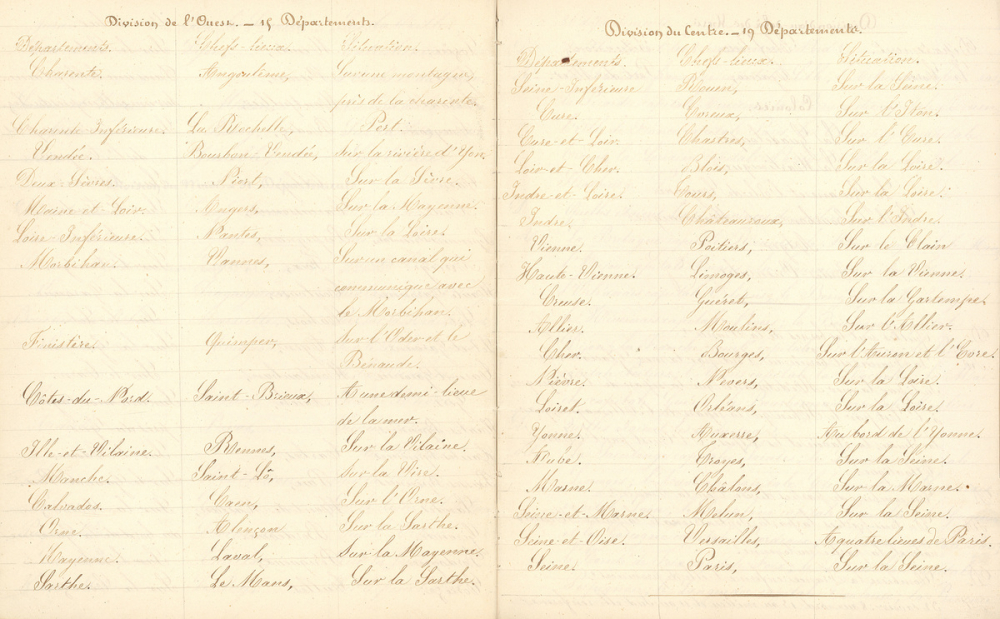 Division de l'Ouest. – 15 Départements.
Départements. Chefs-lieux. Situation.
Charente. Angoulème, Sur une montagne,
près de la Charente.
Charente Inférieure. La Rochelle, Port.
Vendée. Bourbon-Vendée, Sur la rivière d'Yon.
Deux-Sèvres. Niort, Sur la Sèvre.
Maine-et-Loir. Angers, Sur la Mayenne.
Loire-Inférieure. Nantes, Sur la Loire.
Morbihan. Vannes, Sur un canal qui
communique avec
le Morbihan.
Finistère. Quimper, Sur l'Oder et le
Bénaude.
Côtes-du-Nord. Saint-Brieux, A une demi-lieue
de la mer.
Ille-et-Vilaine. Rennes, Sur la Vilaine.
Manche. Saint-Lô, Sur la Vire.
Calvados. Caen, Sur l'Orne.
Orne. Alençon Sur la Sarthe.
Mayenne. Laval, Sur la Mayenne.
Sarthe. Le Mans, Sur la Sarthe.
Division du Centre. – 19 Départements.
Départements. Chefs-lieux. Situation.
Seine-Inférieure Rouen, Sur la Seine.
Eure. Evreux, Sur l'Iton.
Eure-et-Loir. Chartres, Sur l'Eure.
Loir-et-Cher. Blois, Sur la Loire.
Indre-et-Loire. Tours, Sur la Loire.
Indre, Châteauroux, Sur l'Indre.
Vienne. Poitiers, Sur le Clain
Haute-Vienne. Limoges, Sur la Vienne.
Creuse. Guéret, Sur la Gartempe.
Allier. Moulins, Sur l'Allier.
Cher. Bourges, Sur l'Auron et l'Evre.
Nièvre. Nevers, Sur la Loire.
Loiret. Orléans, Sur la Loire.
Yonne. Auxerre, Au bord de l'Yonne.
Aube. Troyes, Sur la Seine.
Marne. Châlons, Sur la Marne.
Seine-et-Marne. Melun, Sur la Seine.
Seine-et-Oise. Versailles, A quatre lieues de Paris.
Seine. Paris, Sur la Seine.